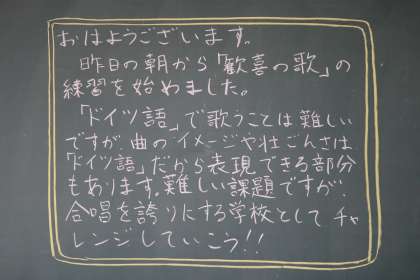 おはようございます。
昨日の朝から「歓喜の歌」の
練習を始めました。
「ドイツ語」で歌うことは難しい
ですが、曲のイメージや壮ごんさは、
「ドイツ語」だから表現できる部分
もあります。難しい課題ですが、
合唱を誇りにする学校としてチャ
レンジしていこう!!